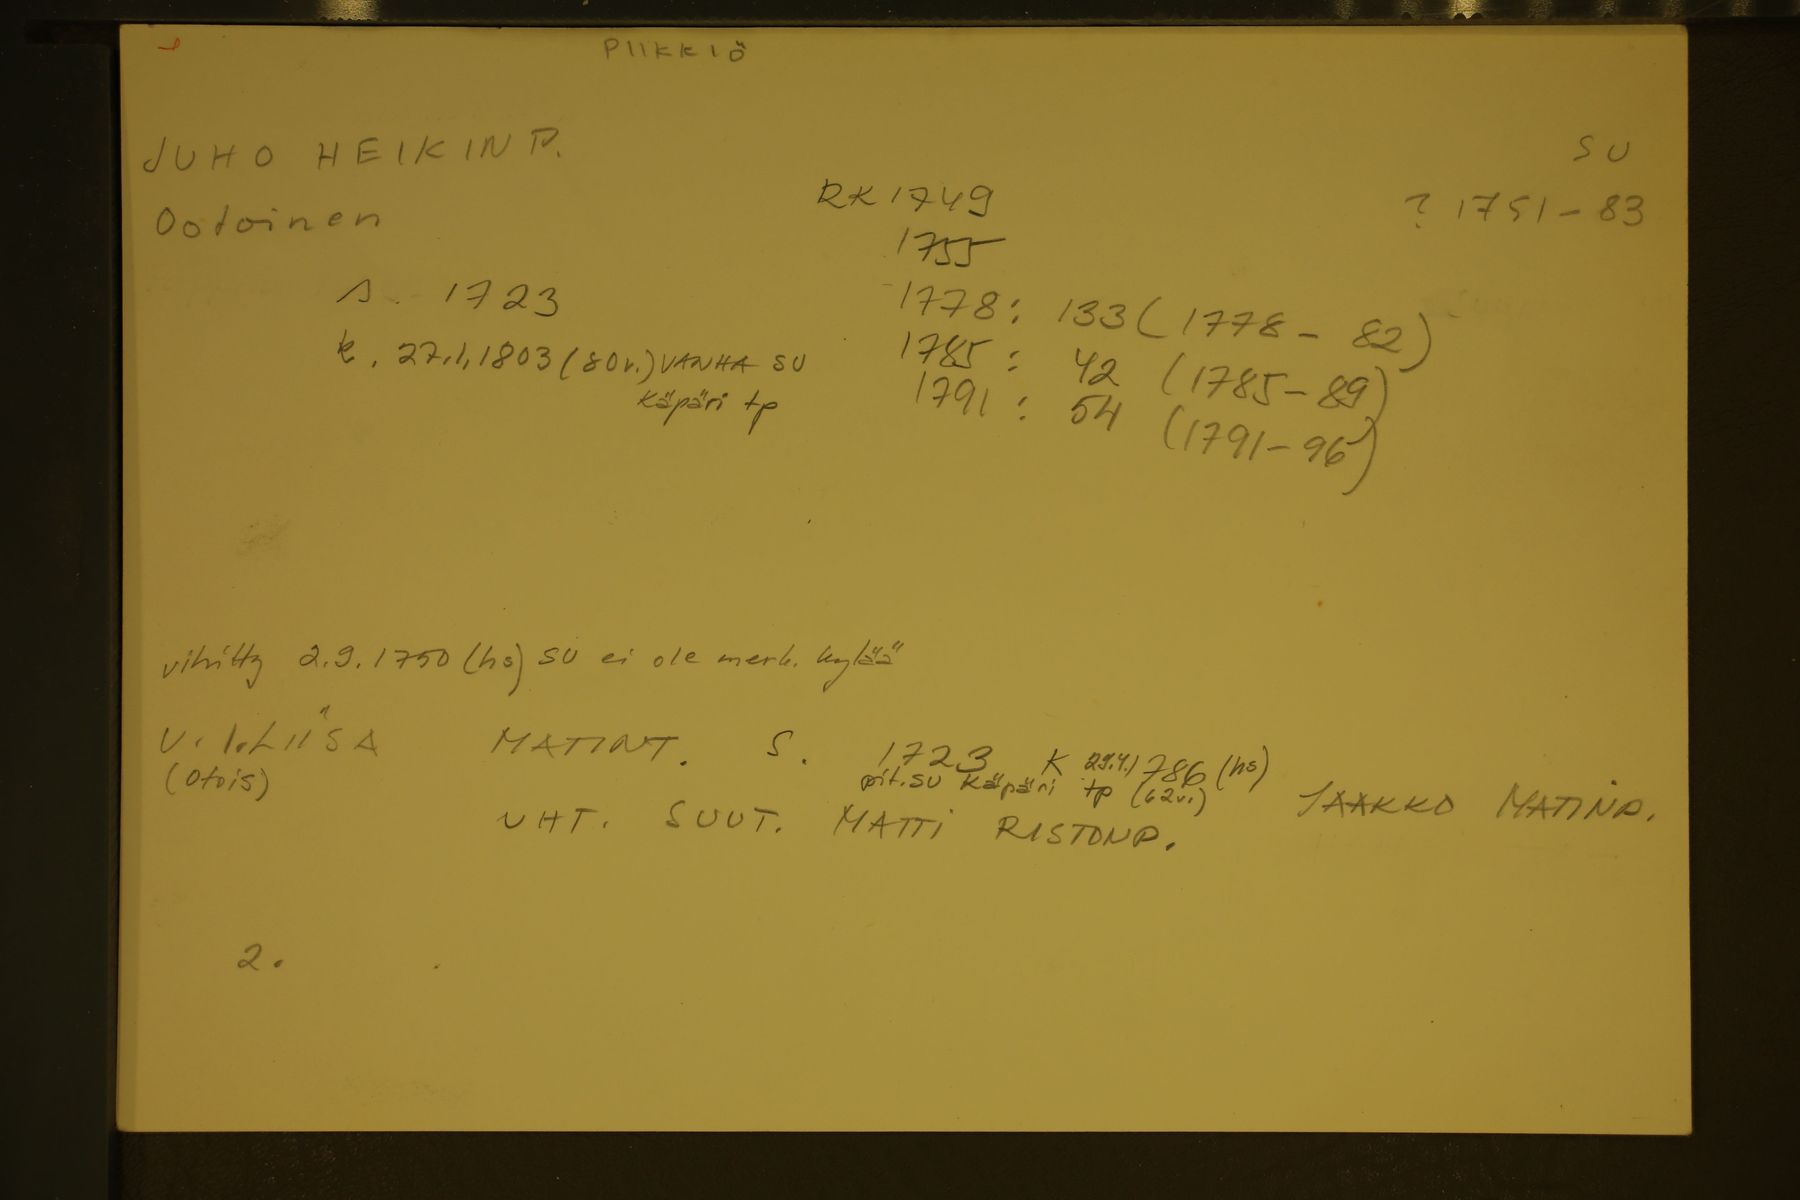 PIIKKIÖ
JUHO HEIKINP. SU
Ootoinen RK 1749 ? 1751-83
1755
s. 1723 1778: 133 (1778-82)
k. 27.1.1803 (80v.) VANHA SU 1785: 42 (1785-89)
Käpäri tp 1791: 54 (1791-96)
vihitty 2.9.1750 (hs) SU ei ole merk. kylää
V. 1. LIISA MATINT. S. 1723 K 29.4.1786 (hs)
(Otois) pit.su Käpäri tp (62v.) JAAKKO MATINP.
VHT. SUUT. MATTI RISTONP.
2.